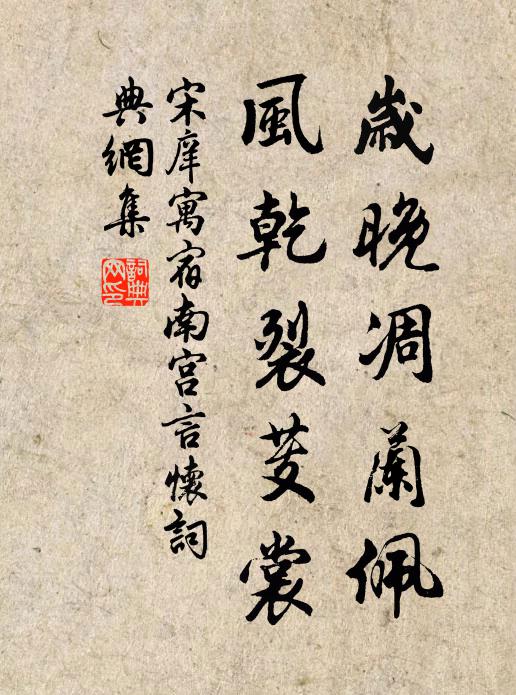 歲晚凋蘭佩
風乾裂芰裳
宋庠寓宿南宮言懷詞
典網集
詞典
网印